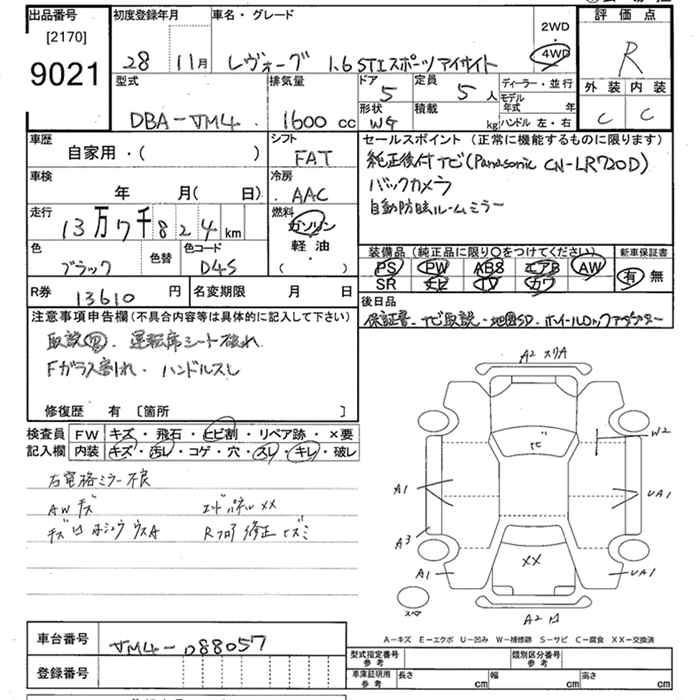 出品番号
[2170]
9021
初度登録年月
28 11月
車名・グレード
レヴォーグ 1.6 STIスポーツアイサイト
2WD
4WD
評価点
R
外装 内装
C C
型式
DBA-VM4
排気量
1600 cc
ドア
5
定員
5 人
形状
WG
積載
kg
ディーラー・並行
モデル年式 年
ハンドル 左・右
車歴
自家用・( )
シフト
FAT
車検
年 月( 日)
冷房
AAC
走行
13万7千824 km
燃料
ガソリン
軽油
( )
色
ブラック
色替
色コード
D4S
セールスポイント(正常に機能するものに限ります)
純正後付ナビ(Panasonic CN-LR720D)
バックカメラ
自動防眩ルームミラー
装備品(純正品に限り○をつけてください)
PS PW ABS エアB AW
SR ナビ TV カワ
新車保証書
有 無
R券
13610 円
名変期限 月 日
後日品
保証書・ナビ取説・地図SD・ホイールロックアダプター
注意事項申告欄(不具合内容等は具体的に記入して下さい)
取説 運転席シート破れ
Fガラス割れ・ハンドルスレ
修復歴 有 [箇所 ]
検査員記入欄
FW キズ・飛石・ヒビ割・リペア跡・×要
内装 キズ・汚レ・コゲ・穴・スレ・キレ・破レ
右電格ミラー不良
AWキズ エンドパネルXX
キズ凹 ホシュウ ウスA Rフロア修正ヒズミ
A2 スリA
ヒビ
W2
A1
UA1
A3
XX
A1
UA1
スペア
A2 凹
A-キズ E-エクボ U-凹み W-補修跡 S-サビ C-腐食 XX-交換済
車台番号
VM4-088057
登録番号
型式指定番号
参考
類別区分番号
参考
車庫証明用
参考
長さ cm
幅 cm
高さ cm